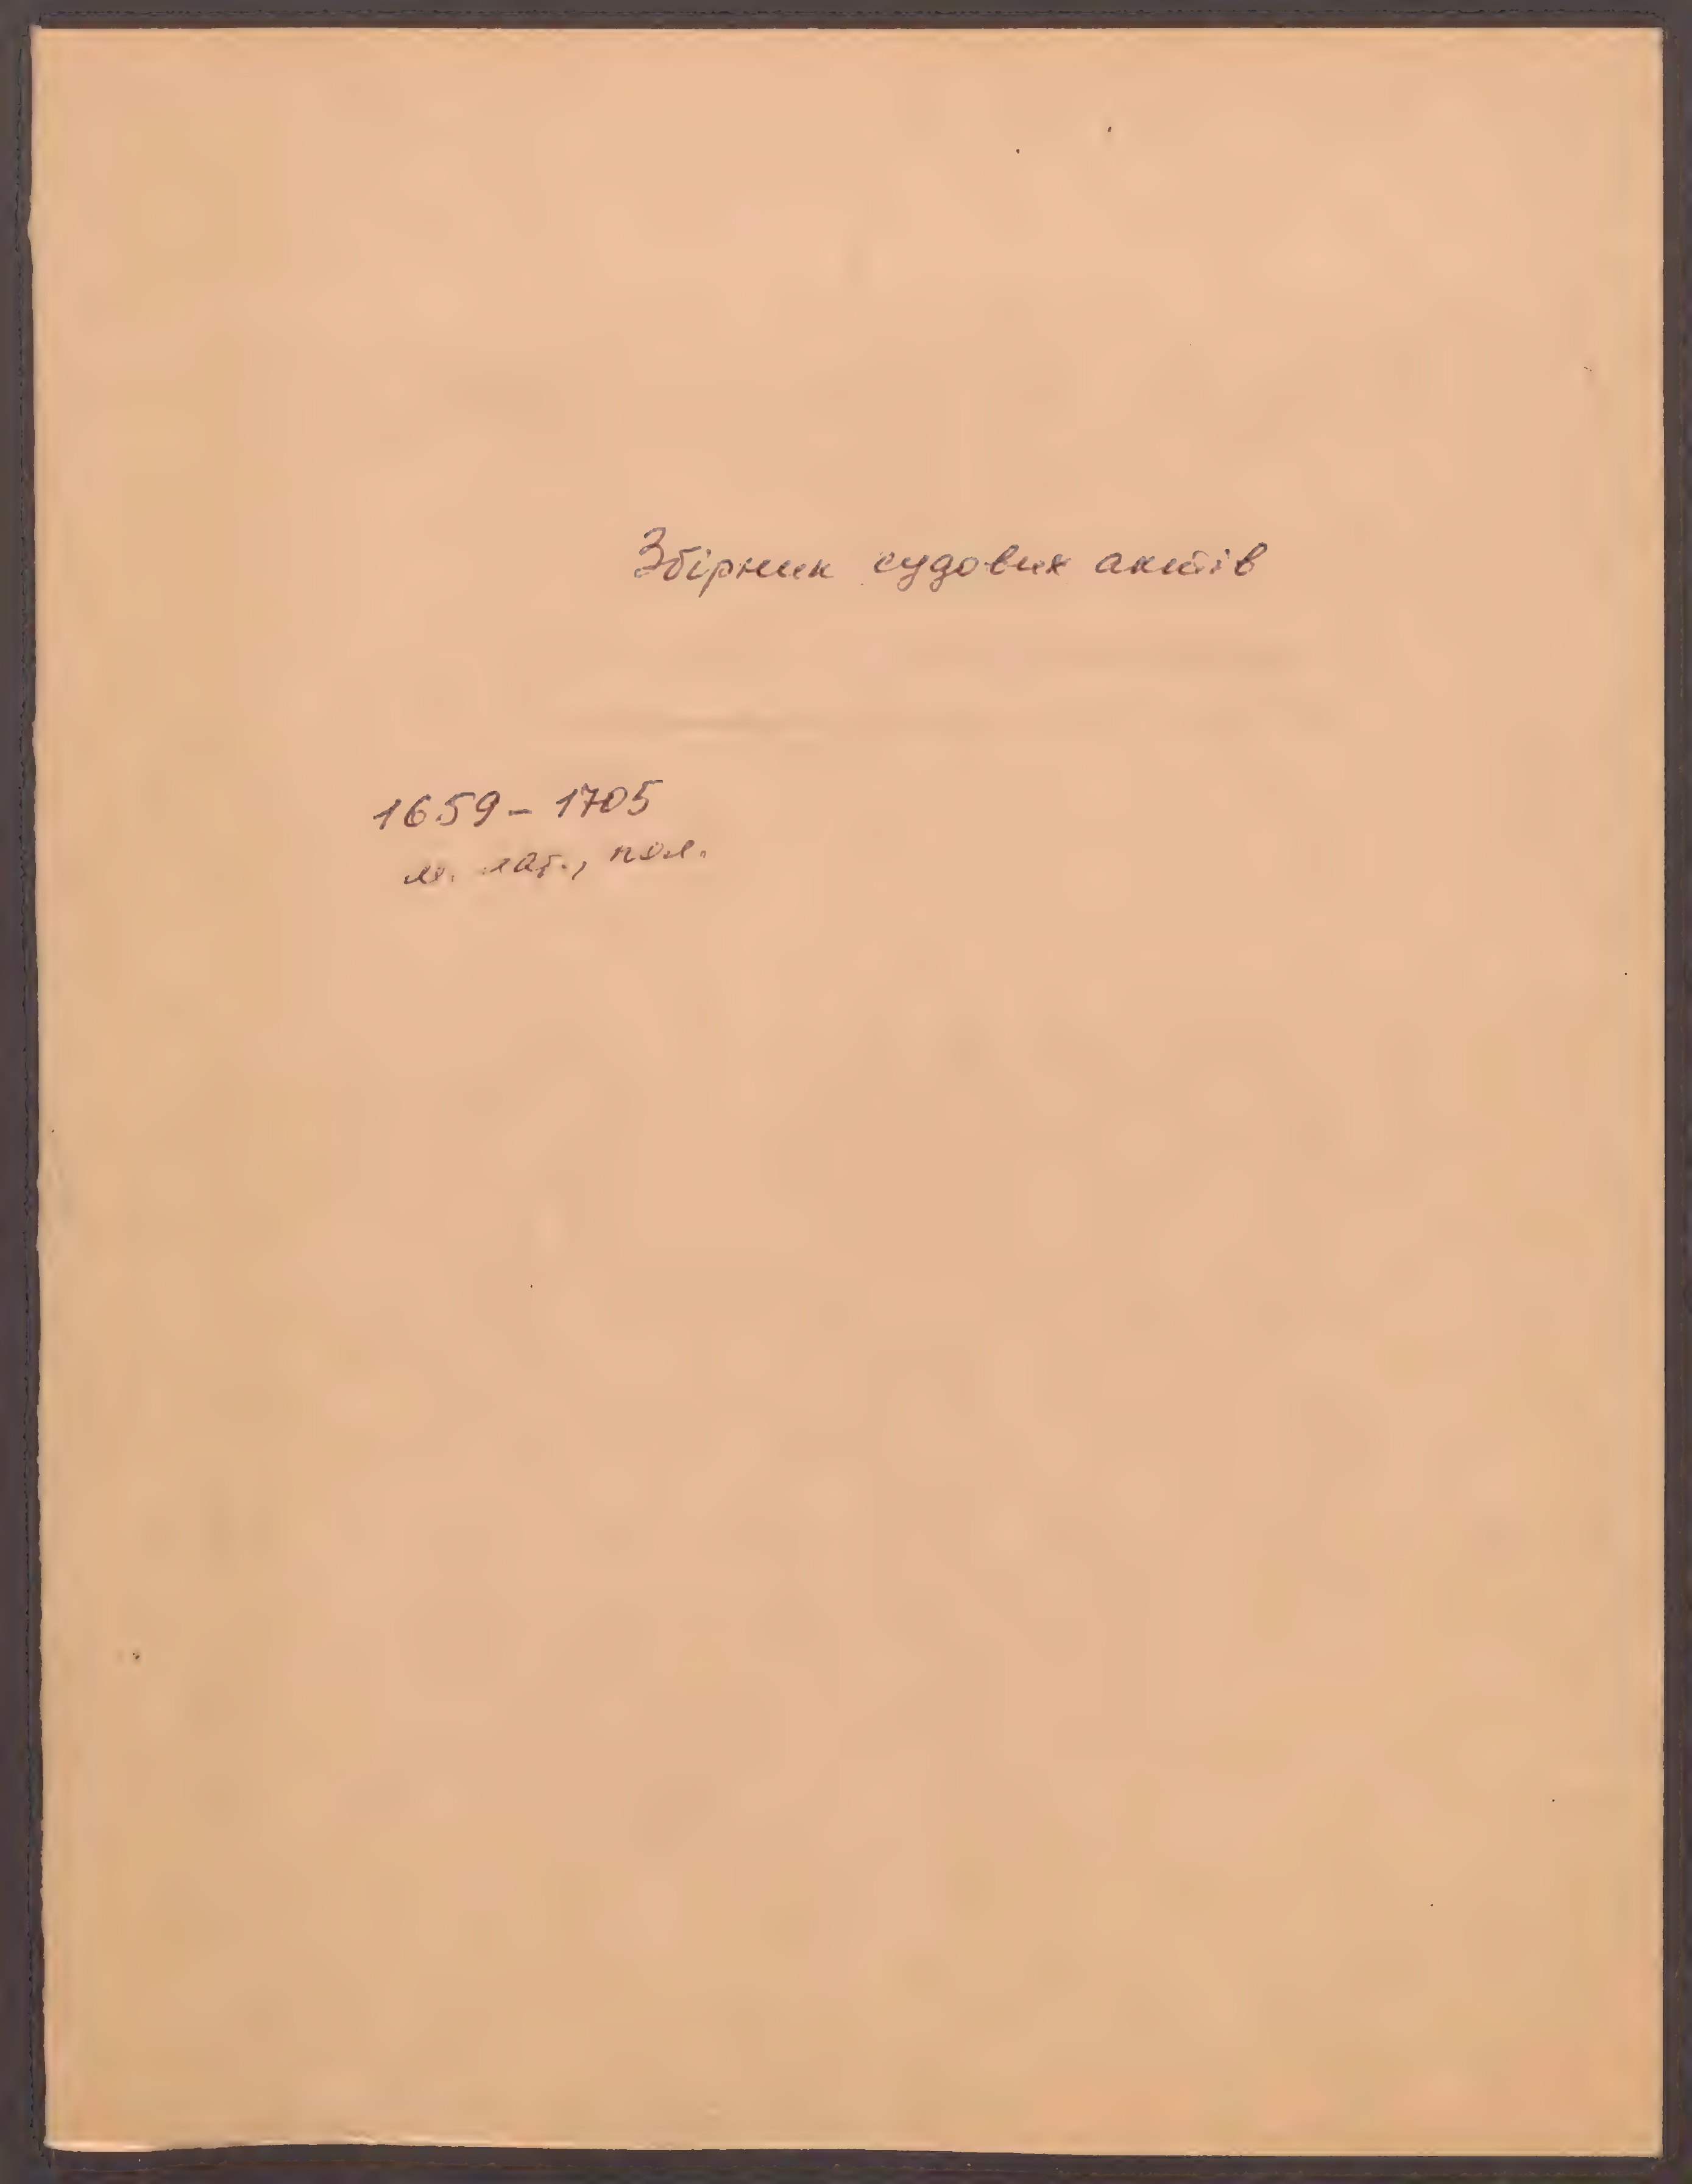 Збірник судових актів
1659 - 1705
м. лат., пол.